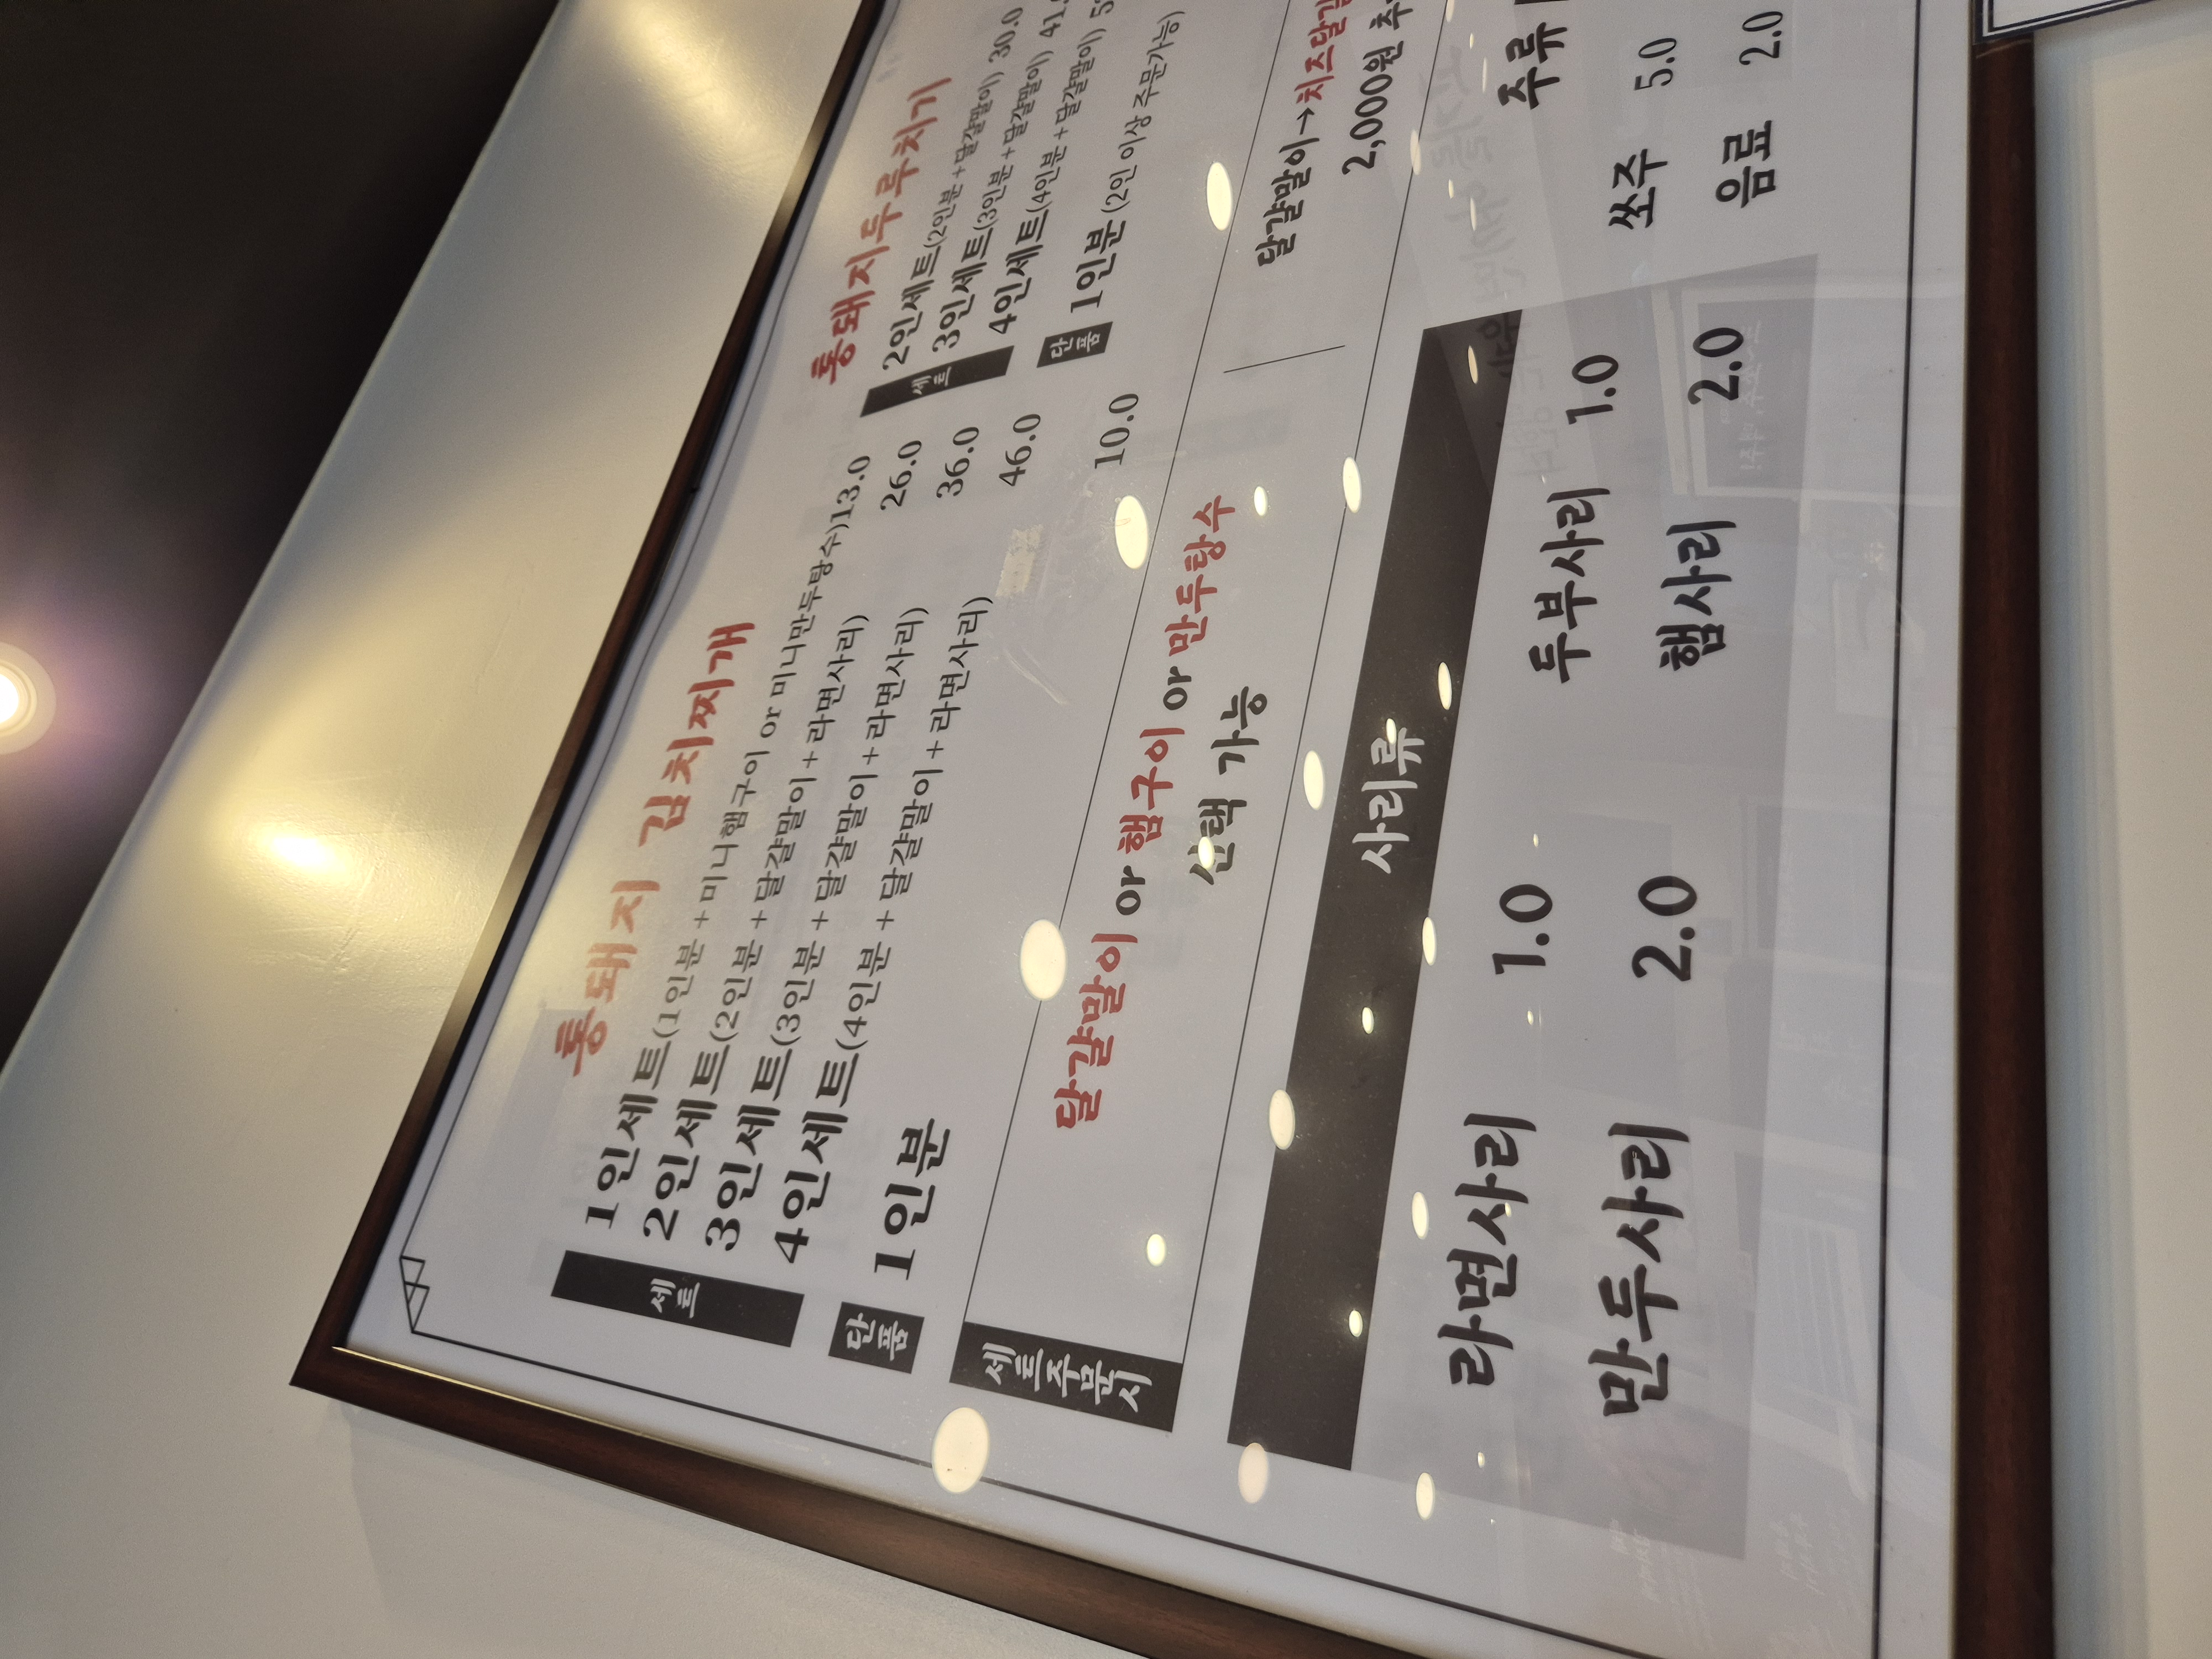 통돼지 김치찌개
세트
1인세트(1인분+미니햄구이 or 미니만두탕수)13.0
2인세트(2인분+달걀말이+라면사리) 26.0
3인세트(3인분+달걀말이+라면사리) 36.0
4인세트(4인분+달걀말이+라면사리) 46.0
단품
1인분 10.0
통돼지두루치기
세트
2인세트(2인분+달걀말이) 30.0
3인세트(3인분+달걀말이) 41.
4인세트(4인분+달걀말이) 5
단품
1인분(2인 이상 주문가능)
세트주문시
달걀말이 or 햄구이 or 만두탕수
선택 가능
달걀말이→치즈달걀
2,000원 추
사리류
라면사리 1.0 두부사리 1.0
만두사리 2.0 햄사리 2.0
주류
쏘주 5.0
음료 2.0